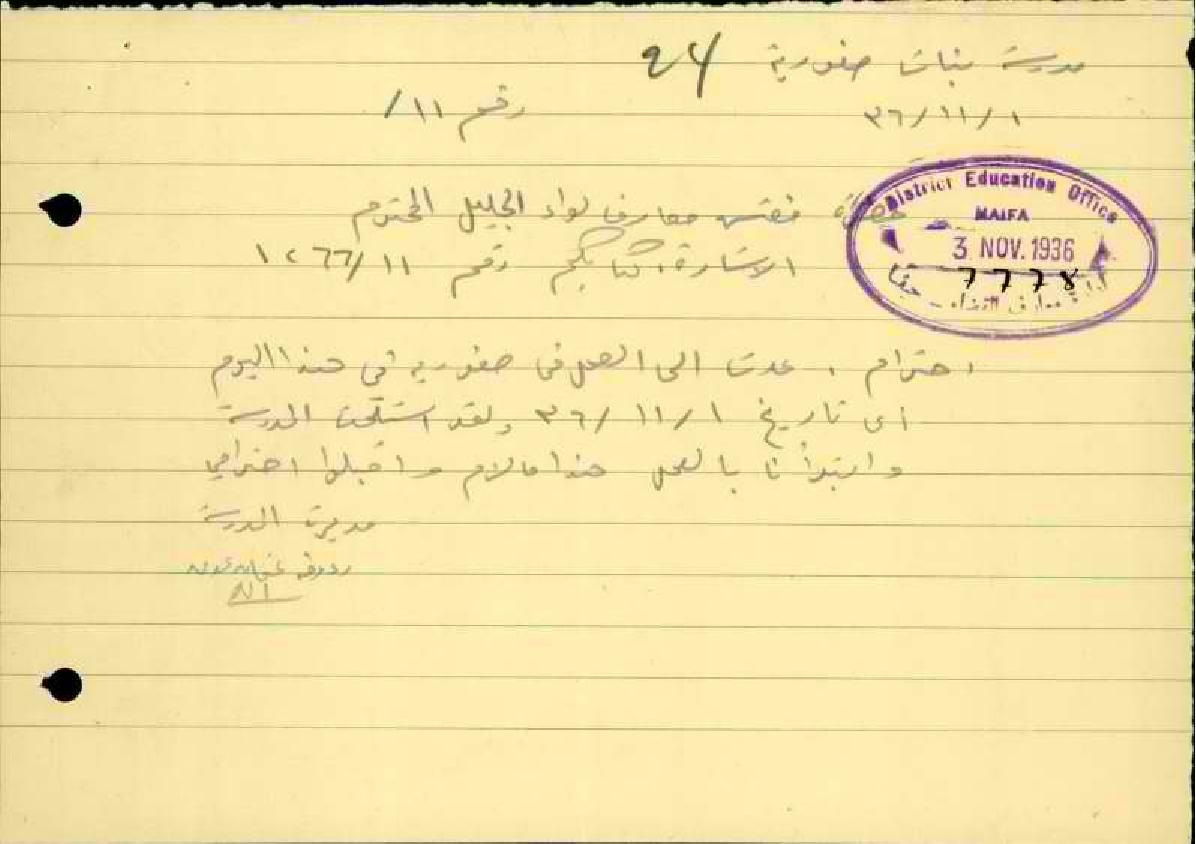 مدرسة بنات صفورية 24
٣٦/١١/١
رقم ١١/
حضرة مفتش معارف لواء الجليل المحترم
الاشارة: كتابكم رقم ١٢٦٦/١١
District Education Office
HAIFA
3 NOV. 1936
٦٦٦٨
ادارة معارف القضاء - حيفا
احترام، عدت الى العمل في صفوريه في هذا اليوم
اي تاريخ ٣٦/١١/١ ولقد استلمت المدرسة
وابتدأنا بالعمل هذا ما لزم واقبلوا احترامي
مديرة المدرسة